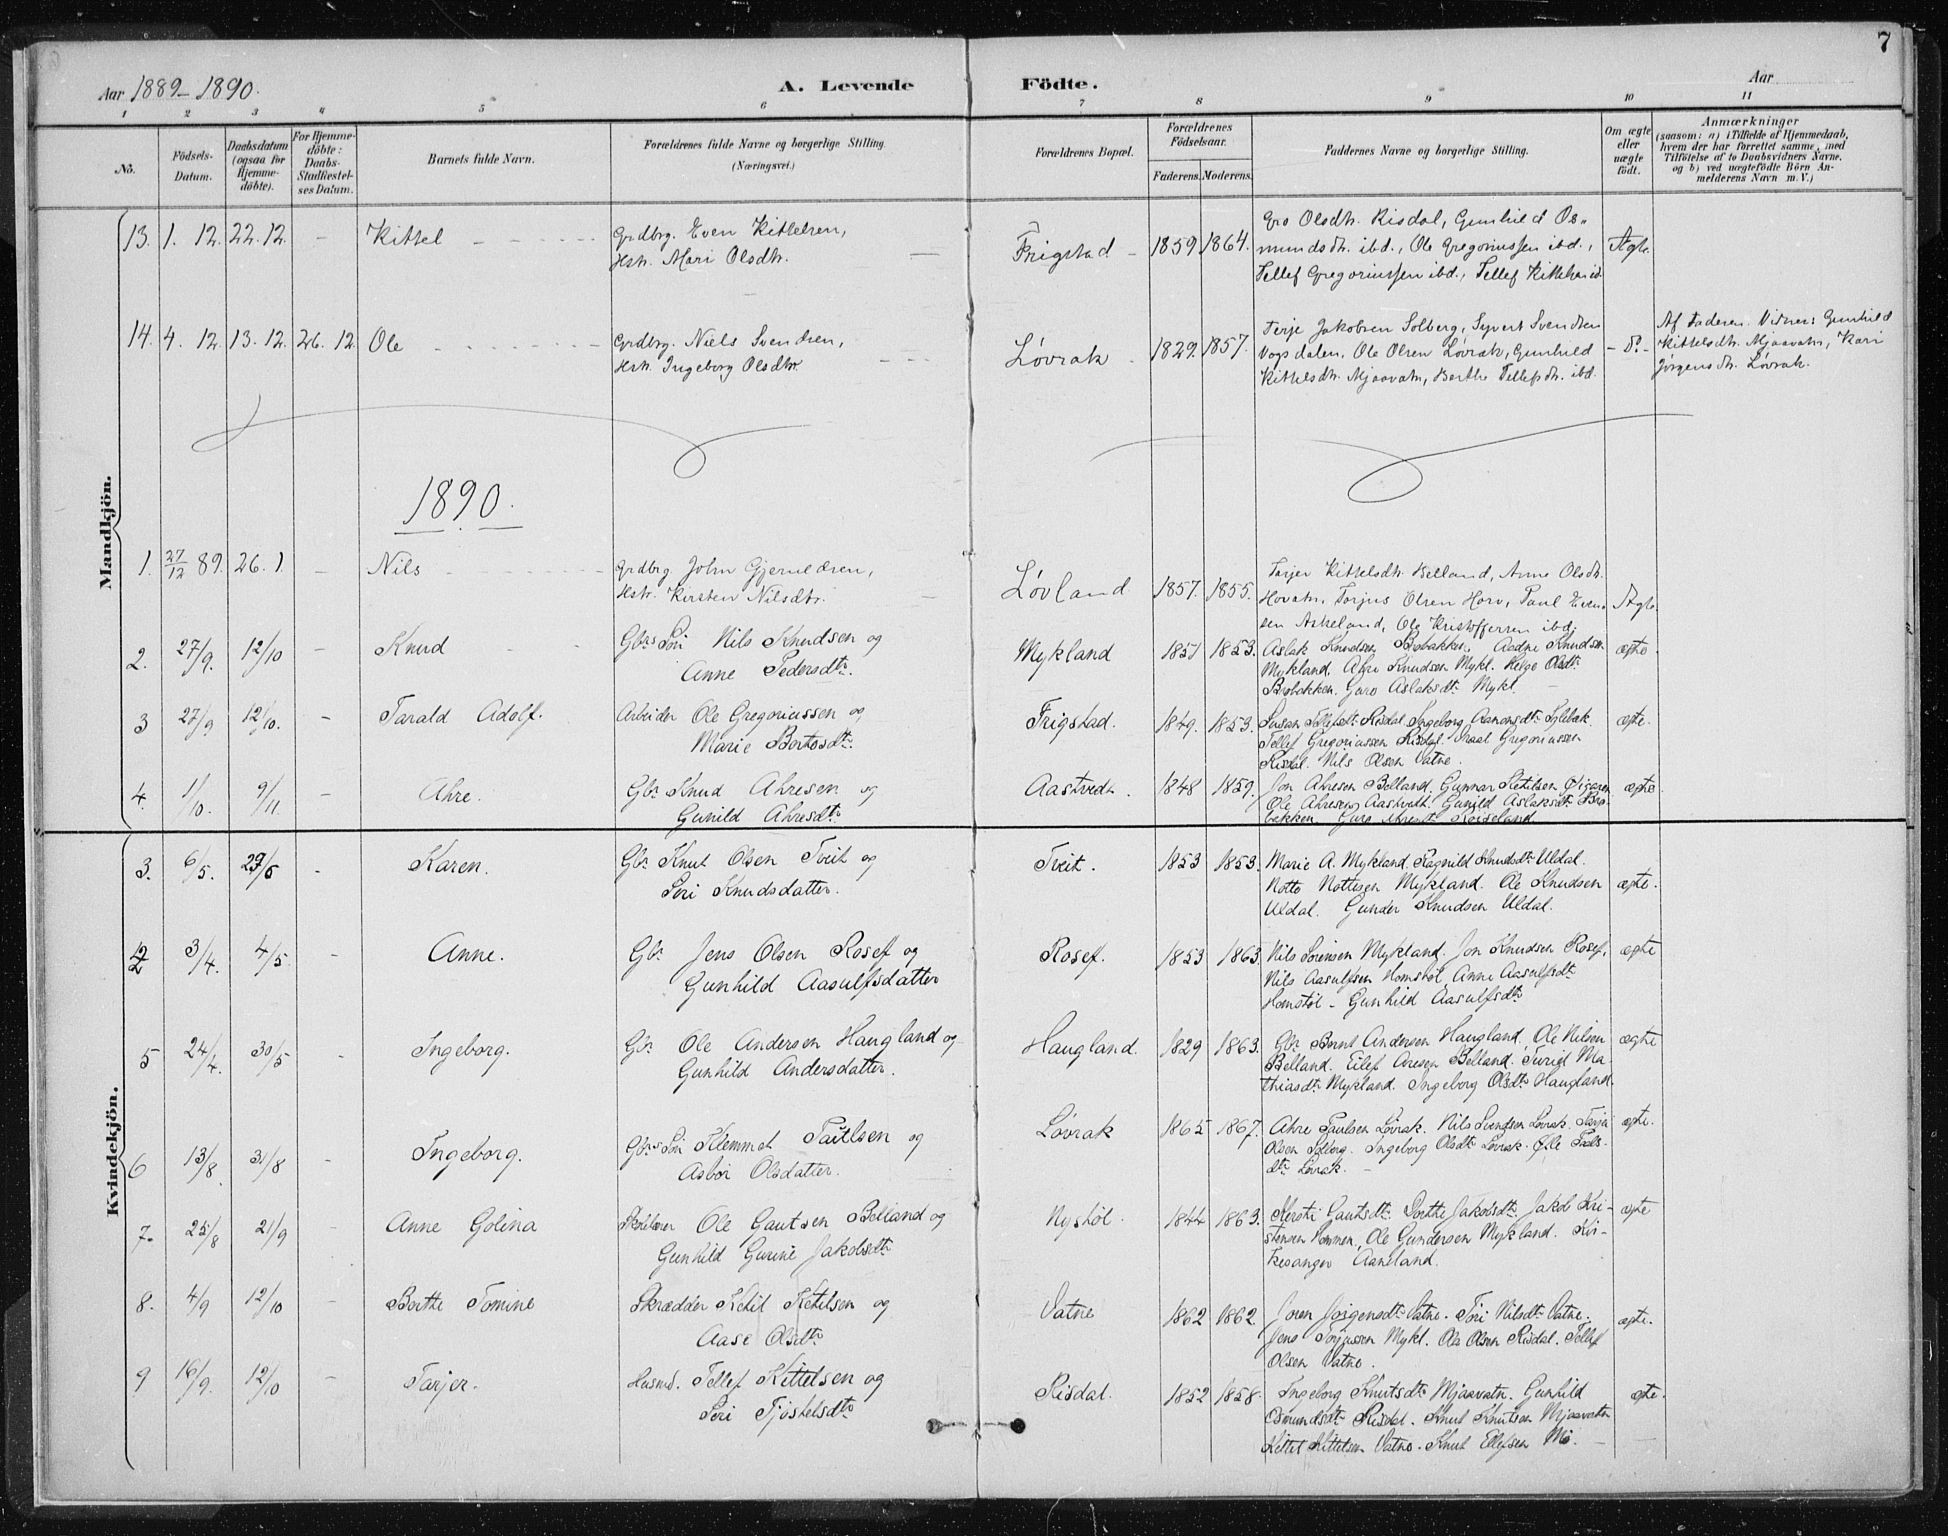 7
Aar 1889-1890.
A. Levende Födte.
Aar
1 2 3 4 5 6 7 8 9 10 11
No.
Födsels-
Datum.
Daabsdatum
(ogsaa for
Hjemme-
döbte).
For Hjemme-
döbte:
Daabs-
Stadfæstel-
ses Datum.
Barnets fulde Navn.
Forældrenes fulde Navne og borgerlige Stilling
(Næringsvei.)
Forældrenes Bopæl.
Forældrenes
Födselsaar.
Faderens. Moderens.
Faddernes Navne og borgerlige Stilling.
Om ægte
eller
uægte
födt.
Anmærkninger
(saasom: a) i Tilfælde af Hjemmedaab,
hvem der har forrettet samme, med
Tilföielse af to Daabsvidners Navne,
og b) ved uægtefödte Börn An-
melderens Navn m. V.)
Mandkjön.
13. 1. 12. 22. 12. - Kittel
Grdbrg. Even Kittelsen,
Hstr. Mari Olsdtr.
Frigstad 1859 1864.
Gro Olsdtr. Risdal, Gunhild Os-
mundsdtr. ibd., Ole Gregoriussen ibd.,
Tellef Gregoriussen ibd., Tellef Kittelsen ibd.
Ægte
14. 4. 12. 13. 12. 26. 12. Ole
Grdbrg. Niels Svendsen,
Hstr. Ingeborg Olsdtr.
Løvrak 1829. 1857.
Terje Jakobsen Solberg, Syvert Svendsen
Vogsdalen, Ole Olsen Løvrak, Gunhild
Kittelsdtr. Mjaavatn, Berthe Tellefsdtr. ibd.
- do. -
Af Faderen. Vidner: Gunhild
Kittelsdtr. Mjaavatn, Kari
Jørgensdtr. Løvrak.
1890.
1. 27/12 89. 26. 1. - Nils
Grdbrg. John Gjermundsen,
Hstr. Kirsten Nilsdtr.
Løvland 1857. 1855.
Tarjer Kittelsdtr. Belland, Anne Olsdtr.
Hovatn, Torjus Olsen Horv, Paul Even-
sen Askeland, Ole Kristoffersen ibd.
Ægte
2. 27/9. 12/10 - Knud
Gbrs Søn Nils Knudsen og
Anne Pedersdtr.
Mykland 1851 1853.
Aslak Knudsen Brobakken, Aadne Knudsen
Mykland. Ahre Knudsen Mykl. Helge Olsdtr
Brobakken. Guro Aslaksdtr Mykl.
ægte.
3 27/9 12/10. - Tarald Adolf.
Arbeider Ole Gregoriussen og
Marie Bertosdtr.
Frigstad. 1849. 1853.
Susan Tellefsdtr Risdal. Ingeborg Aanonsdtr
Tellef Gregoriussen Risdal. Gregoriussen
Risdal. Nils Olsen Vatne.
ægte.
4. 1/10. 9/11. - Ahre.
Gbr Knud Ahresen og
Gunild Ahresdtr
Aastvedt. 1848 1859.
Jon Ahresen Belland. Gunnar Ketilsen
Ole Ahresen Aastvedt. Gunild Aslaksdtr Bro-
bakken. Guro Ahresdtr
ægte
Kvindekjön.
3. 6/5. 29/6 - Karen.
Gbr Knut Olsen Tveit og
Siri Knudsdatter.
Tveit. 1853 1853.
Marie A. Mykland. Ragnild Knudsdtr Uldal.
Notto Nottesen Mykland. Ole Knudsen
Uldal. Gunder Knudsen Uldal.
ægte.
3/4. 4/5 - Anne.
Gbr Jens Olsen Rosef og
Gunhild Aasulfsdatter
Rosef. 1853 1863.
Nils Sørensen Mykland. Jon Knudsen Rosef.
Nils Aasulfsen Homstøl, Anne Aasulfsdtr
Homstøl. Gunhild Aasulfsdtr
ægte
5 24/4. 30/5 - Ingeborg.
Gbr Ole Andersen Haugland og
Gunhild Andersdatter.
Haugland. 1829 1863.
Gbr Bernt Andersen Haugland. Ole Nilsen
Belland. Eilef Aresen Belland. Turid Ma-
thiasdtr Mykland. Ingeborg Olsdtr Haugland.
ægte
6 13/8. 31/8 Ingeborg.
Gbrs Søn Klemmet Paulsen og
Asbor Olsdatter.
Løvrak 1865 1867.
Ahre Paulsen Løvrak. Nils Svendsen Løvrak. Tarje
Olsen Solberg. Ingeborg Olsdtr Løvrak.
dtr Løvrak.
ægte.
7. 25/8 21/9 Anne Golina
Skolelærer Ole Gautsen Belland og
Gunhild Gurine Jakobsdtr
Nystøl. 1844 1863.
Kersti Gautsdtr. Dorthe Jakobsdtr. Jakob Kri-
stensen Mommen, Ole Gundersen Mykland. Kir-
kesanger Aaneland.
ægte
8. 4/9 12/10 - Berthe Tomine
Skrædder Ketil Ketilsen og
Aase Olsdtr
Vatne 1862 1862.
Joren Jørgensdtr Vatne. Siri Nilsdtr Vatne.
Jens Torjussen Mykl. Ole Olsen Risdal. Tellef
Olsen Vatne.
ægte.
9 16/9. 12/10 - Tarjer.
Husmd. Tellef Kittelsen og
Siri Tjøstelsdtr
Risdal. 1852 1858.
Ingeborg Knutsdtr Mjaavatn. Gunhild
Osmundsdtr Risdal. Knut Knutsen Mjaavatn
Kittel Kittelsen Vatne. Knut Ellefsen Mo.
ægte.